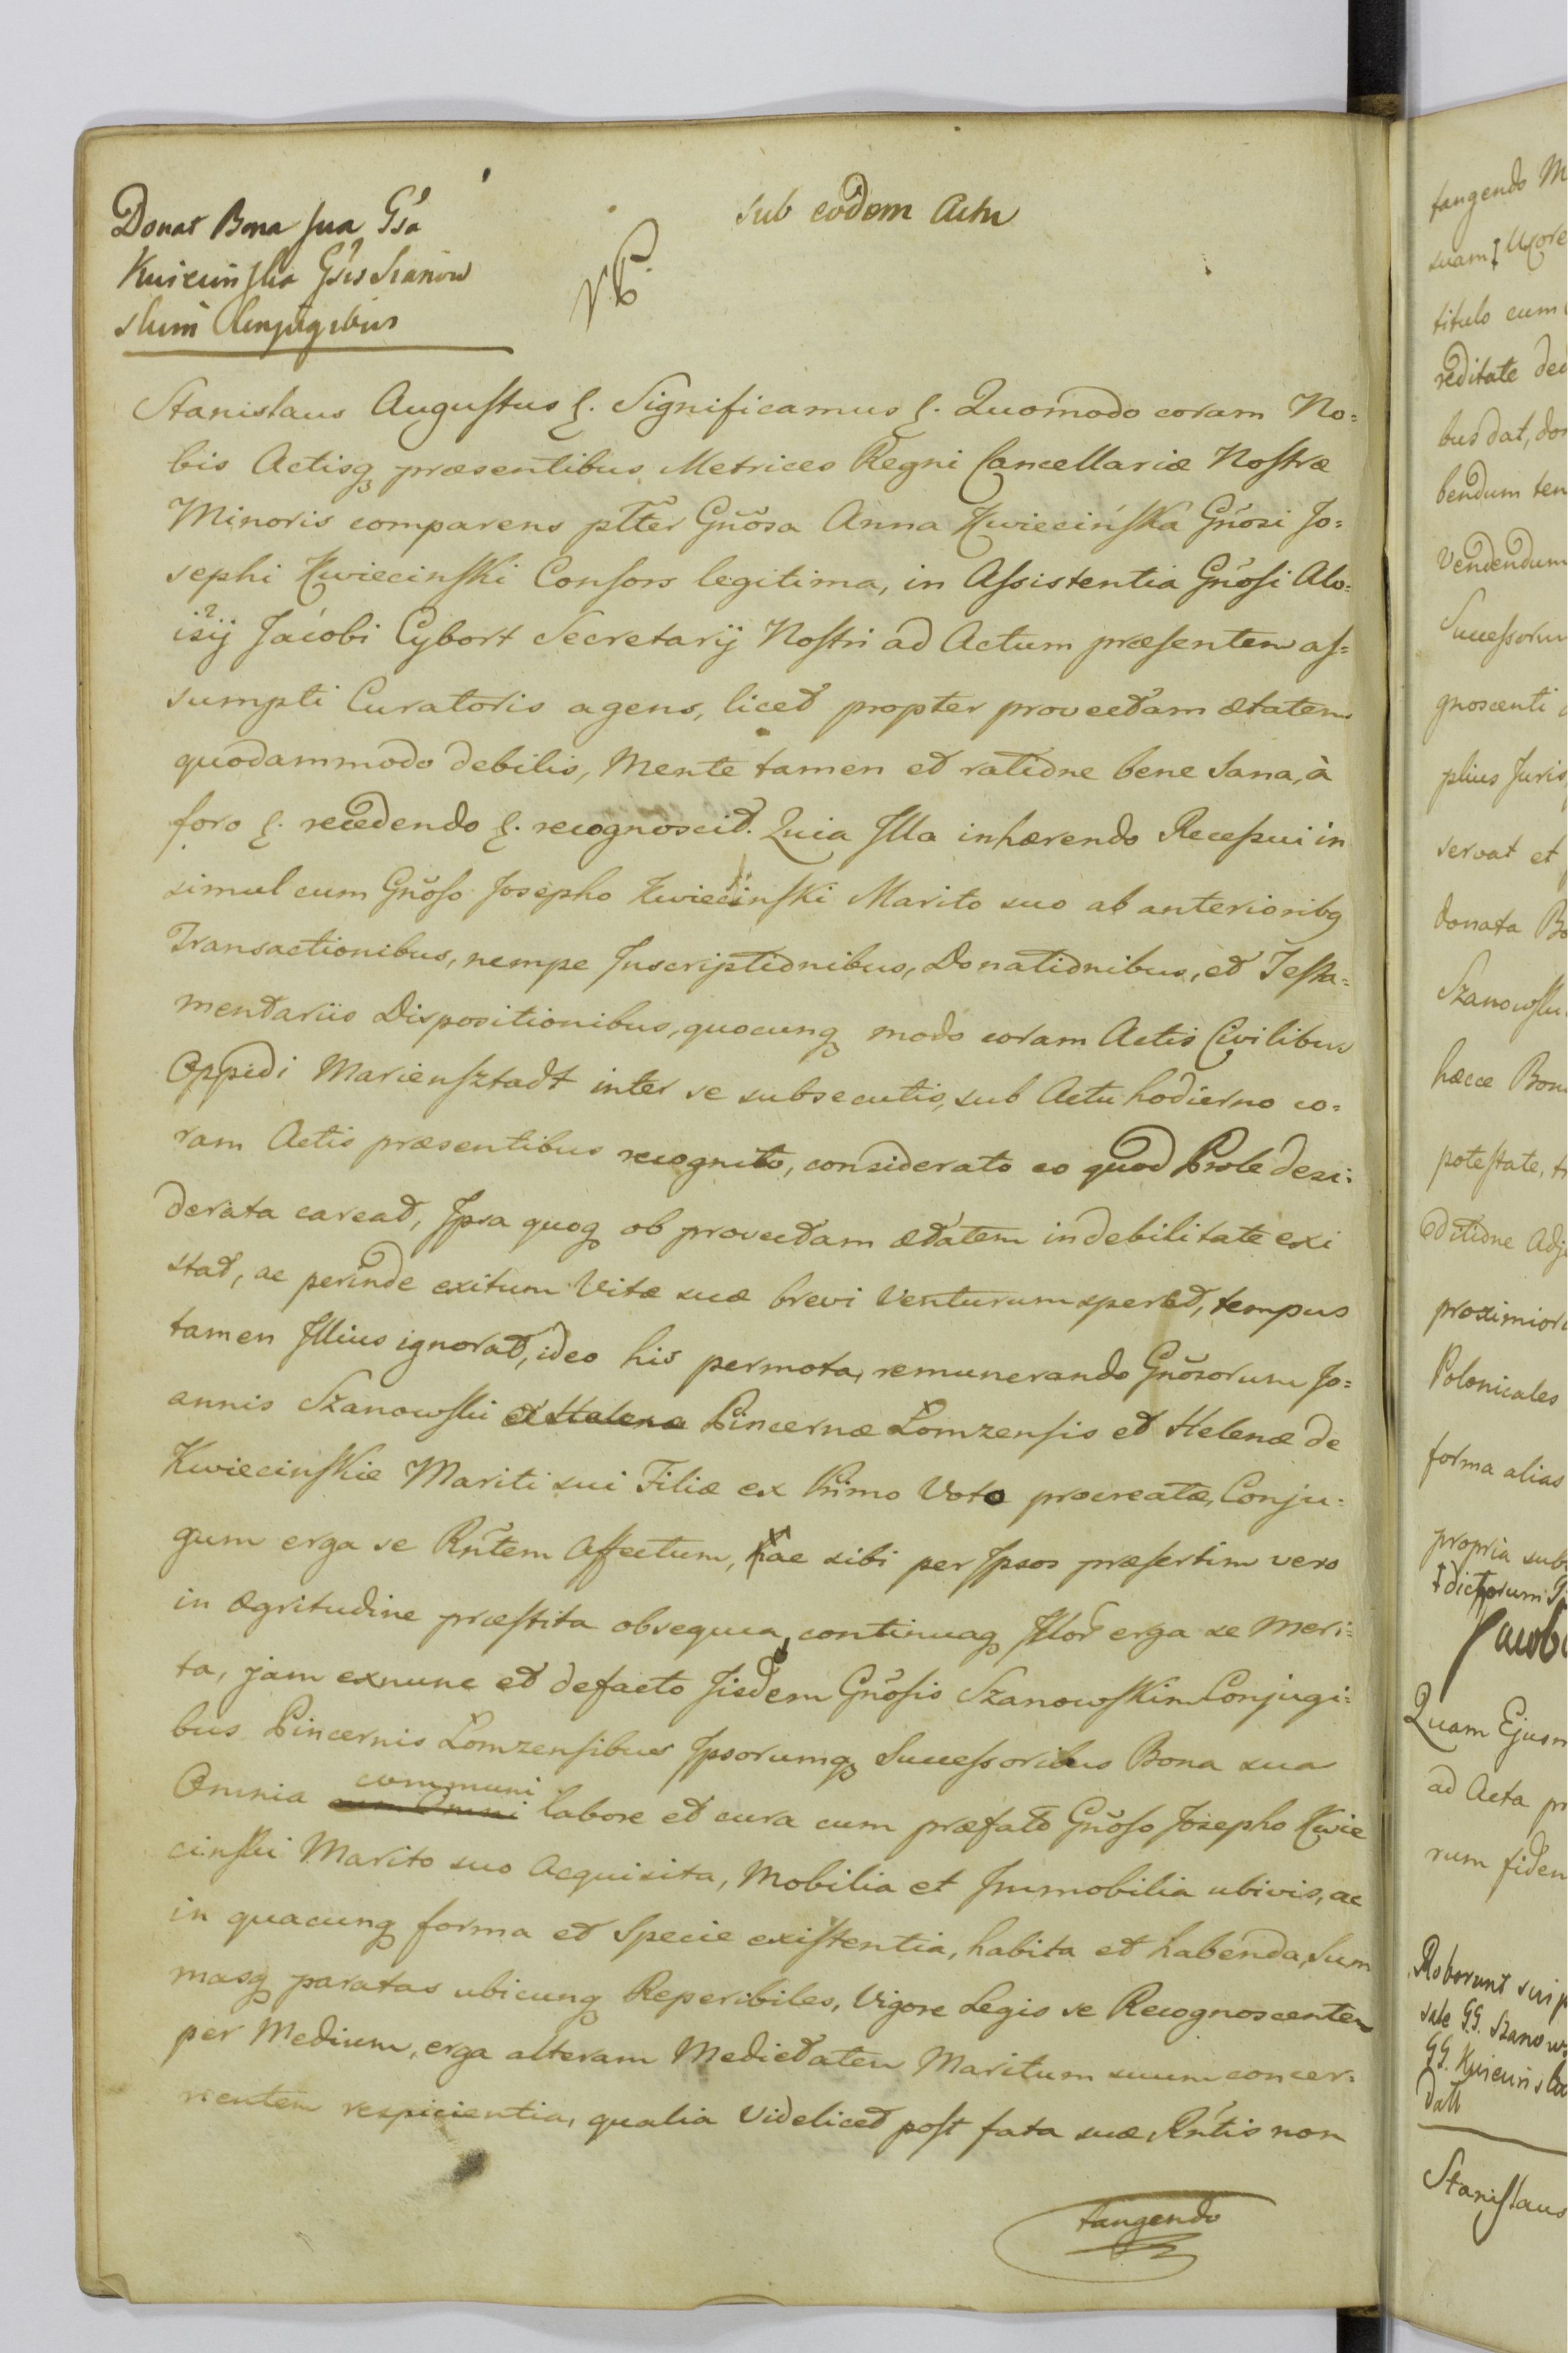 Donat Bona sua Gsa
Kwiecinska Gsis Szanow
skim Conjugibus
sub eodem Actu
Stanislaus Augustus ξ. Significamus ξ. Quomodo coram No=
bis Actisq præsentibus Metrices Regni Cancellariæ Nostræ
Minoris comparens pltter Gnosa Anna Kwiecińska Gnosi Jo=
sephi Kwiecinski Consors legitima, in Assistentia Gnosi Alo=
isij Jacobi Cybort Secretarij Nostri ad Actum præsentem as=
sumpti Curatoris agens, licet propter provectam ætatem
quodammodo debilis, Mente tamen et ratione bene Sana, à
foro ξ. recedendo ξ. recognoscit. Quia Illa inhærendo Recessui in
simul cum Gnoso Josepho Kwiecinski Marito suo ab anterioribq
Transactionibus, nempe Inscriptionibus, Donationibus, et Testa=
mentariis Dispositionibus, quocunq modo coram Actis Civilibus
Oppidi Mariensztadt inter se subsecutis, sub Actu hodierno co=
ram Actis præsentibus recognito, considerato eo quod Prole desi=
derata careat, Ipsa quoq ob provectam ætatem in debilitate exi
stat, ac perinde exitum Vitæ suæ brevi Venturum speret, tempus
tamen Illius ignorat, ideo his permota, remunerando Gnosorum Jo=
annis Szanowski et Helenæ Pincernæ Łomzensis et Helenæ de
Kwiecinskie Mariti sui Filiæ ex Primo Voto procreatæ, Conju=
gum erga se Rntem Affectum, ac sibi per Ipsos præsertim vero
in ægritudine præstita obsequia, continuaq Illor erga se Meri=
ta, jam exnunc et defacto Iisdem Gnosis Szanowskim Conjugi=
bus Pincernis Łomzensibus Ipsorumq Successoribus Bona sua
Omnia communi labore et cura cum præfato Gnoso Josepho Kwie
cinski Marito suo Acquisita, Mobilia et Immobilia ubivis, ac
in quacunq forma et Specie existentia, habita et habenda, Sum
masq paratas ubicunq Reperibiles, Vigore Legis se Recognoscentem
per Medium, erga alteram Medietatem Maritum suum concer=
nentem respicientia, qualia Videlicet post fata suæ Rntis non
tangendo
tangendo M
suam Uxore
titulo cum
reditate ded
bus dat, don
bendum ten
Vendendum
Successorum
gnoscenti
plius Juris
servat et
donata Bo
Szanowski
hæcce Bon
potestate, tr
ditione Adj
proximior
Polonicales
forma alias
propria sub
dictorum G
Jacob
Quam Ejusm
ad Acta pr
rum fidem
Roborunt scrip
sale GG. Szanow
GG. Kwiecinski
Datt
Stanislaus